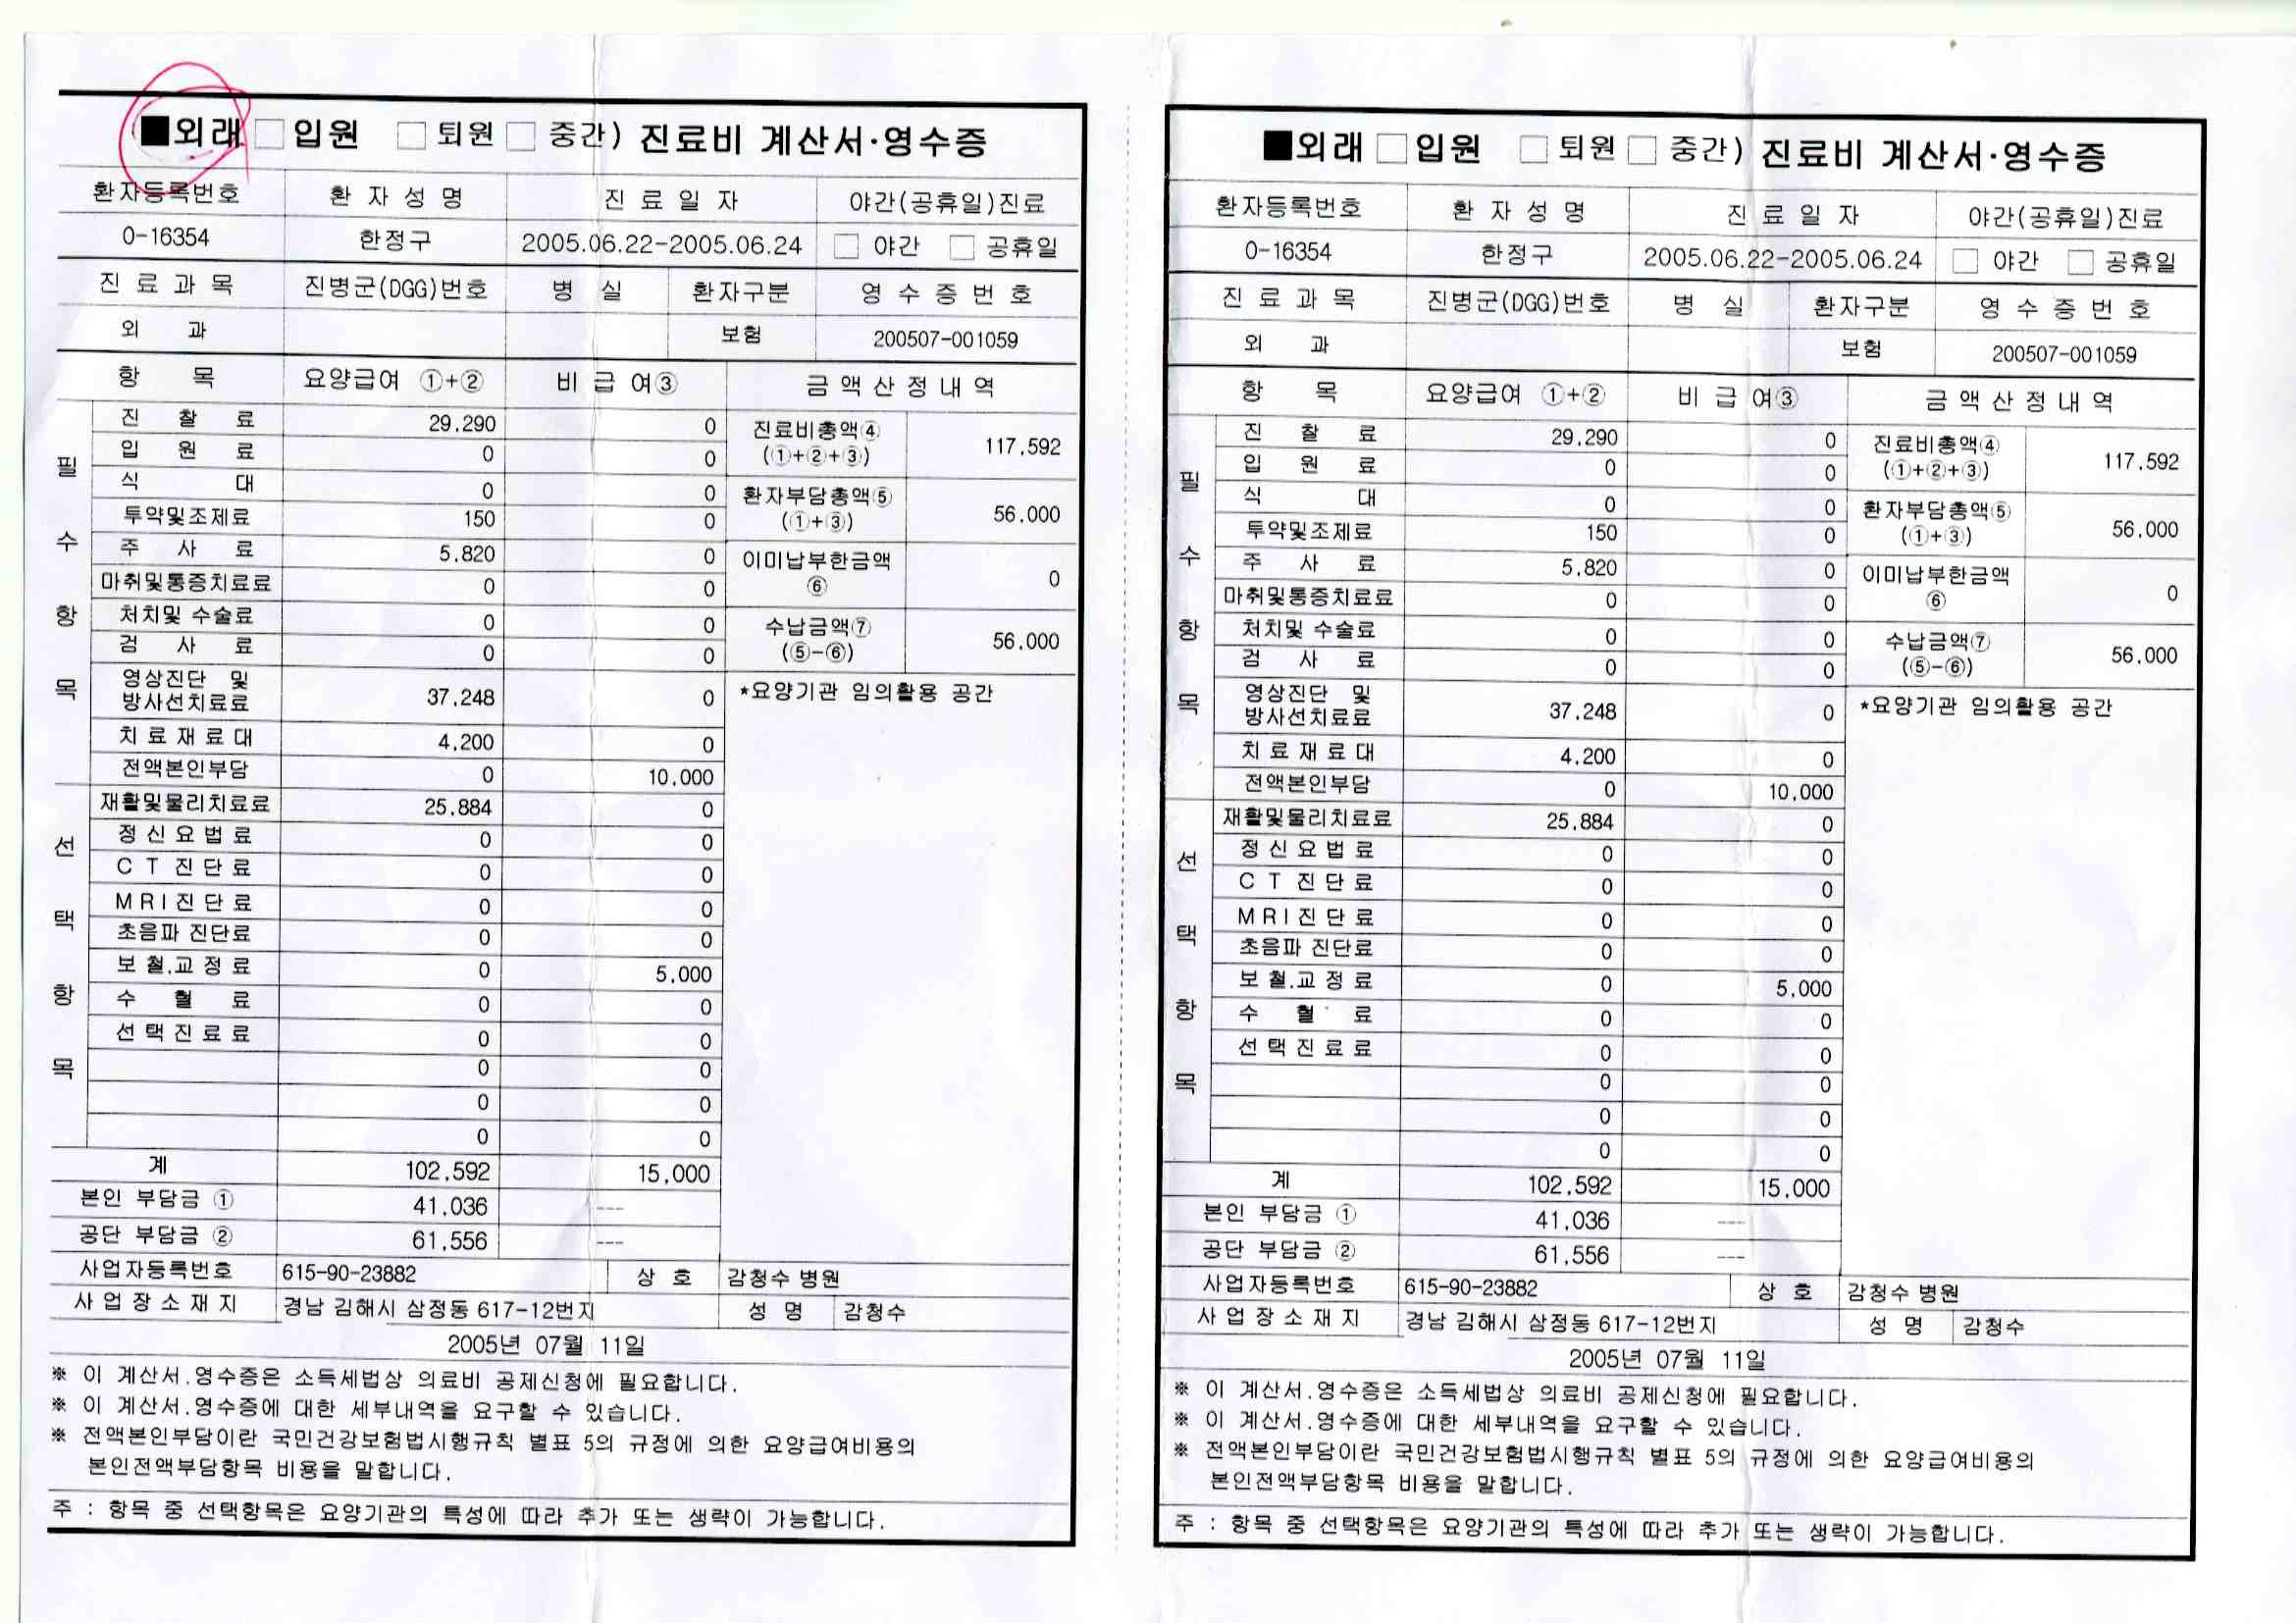 ■외래 □ 입원 □ 퇴원 □ 중간) 진료비 계산서·영수증
환자등록번호 환 자 성 명 진 료 일 자 야간(공휴일)진료
0-16354 한정구 2005.06.22-2005.06.24 □ 야간 □ 공휴일
진 료 과 목 진병군(DGG)번호 병 실 환자구분 영 수 증 번 호
외 과 보험 200507-001059
항 목 요양급여 ①+② 비 급 여③ 금 액 산 정 내 역
필 수 항 목
진 찰 료 29.290 0
입 원 료 0 0
식 대 0 0
투약및조제료 150 0
주 사 료 5.820 0
마취및통증치료료 0 0
처치및 수술료 0 0
검 사 료 0 0
영상진단 및
방사선치료료 37.248 0
치 료 재 료 대 4.200 0
전액본인부담 0 10.000
선 택 항 목
재활및물리치료료 25.884 0
정 신 요 법 료 0 0
C T 진 단 료 0 0
M R I 진 단 료 0 0
초음파 진단료 0 0
보 철.교 정 료 0 5.000
수 혈 료 0 0
선 택 진 료 료 0 0
0 0
0 0
0 0
계 102.592 15.000
본인 부담금 ① 41.036 ---
공단 부담금 ② 61.556 ---
진료비총액④
(①+②+③) 117.592
환자부담총액⑤
(①+③) 56.000
이미납부한금액
⑥ 0
수납금액⑦
(⑤-⑥) 56.000
*요양기관 임의활용 공간
사업자등록번호 615-90-23882 상 호 감청수 병원
사 업 장 소 재 지 경남 김해시 삼정동 617-12번지 성 명 감청수
2005년 07월 11일
※ 이 계산서.영수증은 소득세법상 의료비 공제신청에 필요합니다.
※ 이 계산서.영수증에 대한 세부내역을 요구할 수 있습니다.
※ 전액본인부담이란 국민건강보험법시행규칙 별표 5의 규정에 의한 요양급여비용의
본인전액부담항목 비용을 말합니다.
주 : 항목 중 선택항목은 요양기관의 특성에 따라 추가 또는 생략이 가능합니다.
■외래 □ 입원 □ 퇴원 □ 중간) 진료비 계산서·영수증
환자등록번호 환 자 성 명 진 료 일 자 야간(공휴일)진료
0-16354 한정구 2005.06.22-2005.06.24 □ 야간 □ 공휴일
진 료 과 목 진병군(DGG)번호 병 실 환자구분 영 수 증 번 호
외 과 보험 200507-001059
항 목 요양급여 ①+② 비 급 여③ 금 액 산 정 내 역
필 수 항 목
진 찰 료 29.290 0
입 원 료 0 0
식 대 0 0
투약및조제료 150 0
주 사 료 5.820 0
마취및통증치료료 0 0
처치및 수술료 0 0
검 사 료 0 0
영상진단 및
방사선치료료 37.248 0
치 료 재 료 대 4.200 0
전액본인부담 0 10.000
선 택 항 목
재활및물리치료료 25.884 0
정 신 요 법 료 0 0
C T 진 단 료 0 0
M R I 진 단 료 0 0
초음파 진단료 0 0
보 철.교 정 료 0 5.000
수 혈 료 0 0
선 택 진 료 료 0 0
0 0
0 0
0 0
계 102.592 15.000
본인 부담금 ① 41.036 ---
공단 부담금 ② 61.556 ---
진료비총액④
(①+②+③) 117.592
환자부담총액⑤
(①+③) 56.000
이미납부한금액
⑥ 0
수납금액⑦
(⑤-⑥) 56.000
*요양기관 임의활용 공간
사업자등록번호 615-90-23882 상 호 감청수 병원
사 업 장 소 재 지 경남 김해시 삼정동 617-12번지 성 명 감청수
2005년 07월 11일
※ 이 계산서.영수증은 소득세법상 의료비 공제신청에 필요합니다.
※ 이 계산서.영수증에 대한 세부내역을 요구할 수 있습니다.
※ 전액본인부담이란 국민건강보험법시행규칙 별표 5의 규정에 의한 요양급여비용의
본인전액부담항목 비용을 말합니다.
주 : 항목 중 선택항목은 요양기관의 특성에 따라 추가 또는 생략이 가능합니다.